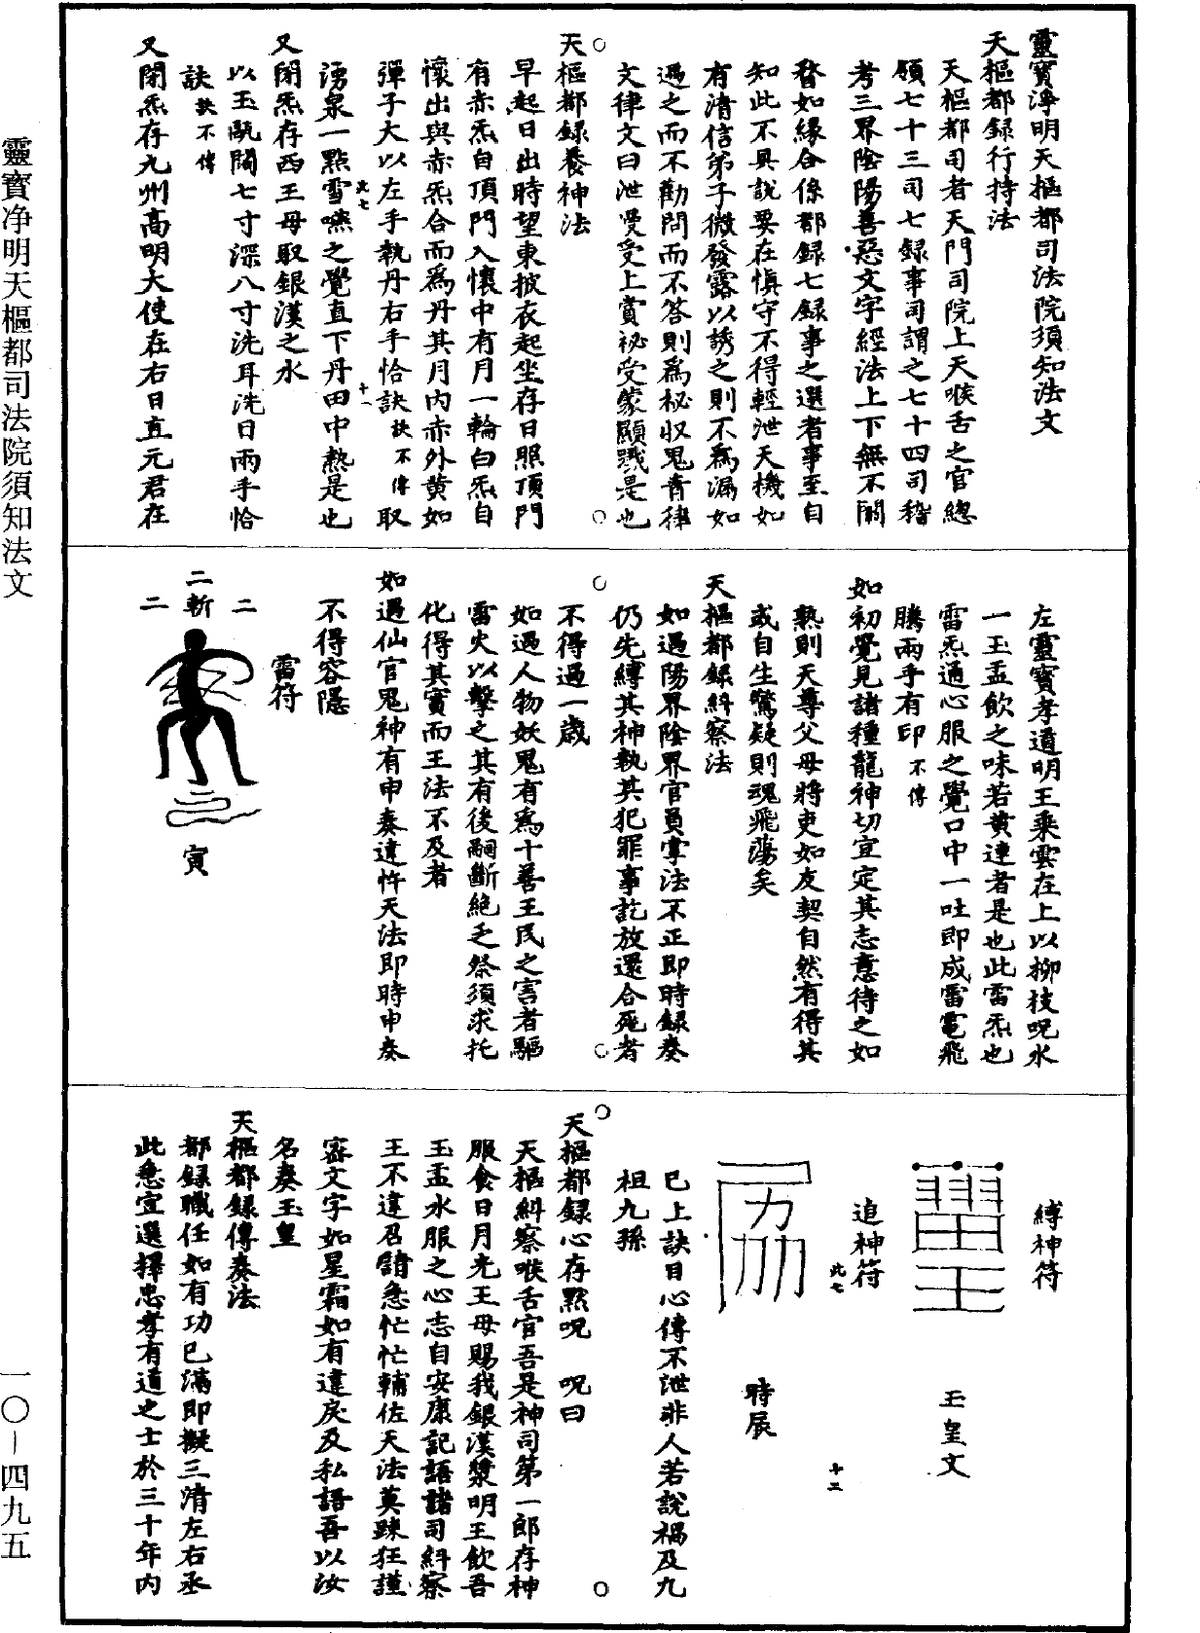 靈寶淨明天樞都司法院須知法文
天樞都錄行持法
天樞都司者天門司院上天喉舌之官緫
領七十三司七錄事司謂之七十四司稽
考三界陰陽善惡文字經法上下無不關
昝如緣合係都錄七錄事之選者事至自
知此不具說要在慎守不得輕泄天機如
有清信弟子微發露以誘之則不爲漏如
遇之而不勸問而不答則爲秘収鬼青律
文律文曰泄受受上賞祕受蒙顯戮是也
天樞都錄養神法
早起日出時望東披衣起坐存日照頂門
有赤炁自頂門入懷中有月一輪白炁自
懷出與赤炁合而爲丹其月內赤外黄如
彈子大以左手執丹右手恰訣訣不傳取
此七 十一
湧泉一點雪嚥之覺直下丹田中熱是也
又閉炁存西王母取銀漢之水
以玉甌闊七寸深八寸洗耳洗目兩手恰
訣訣不傳
又閉炁存九州高明大使在右日直元君在
左靈寶孝道明王乘雲在上以柳枝呪水
一玉盂飲之味若黄連者是也此雷炁也
雷炁通心服之覺口中一吐即成雷電飛
騰兩手有印不傳
如初覺見諸種龍神切宜定其志意待之如
熟則天尊父母將吏如友契自然有得其
或自生驚疑則魂飛蕩矣
天樞都錄糾察法
如遇陽界陰界官員掌法不正即時錄奏
仍先縛其神執其犯罪事訖放還合死者
不得過一歲
如遇人物妖鬼有爲十善王民之害者驅
雷火以擊之其有後嗣斷絶乏祭須求托
化得其實而王法不及者
如遇仙官鬼神有申奏違忤天法即時申奏
不得容隱
雷符
二
二斬
二
寅
縛神符
玉皇文
追神符
此七 十二
時展
已上訣目心傳不泄非人若說禍及九
祖九孫
天樞都錄心存點呪 呪曰
天樞糾察喉舌官吾是神司第一郎存神
服食日月光王母賜我銀漢漿明王飲吾
玉盂水服之心志自安康記語諸司糾察
王不違召請急忙忙輔佐天法莫踈狂謹
密文字如星霜如有違戾及私語吾以汝
名奏玉皇
天樞都錄傳奏法
都錄職任如有功已滿即擬三清左右丞
此急宜選擇忠孝有道之士於三十年内
靈寶净明天樞都司法院須知法文
一〇－四九五